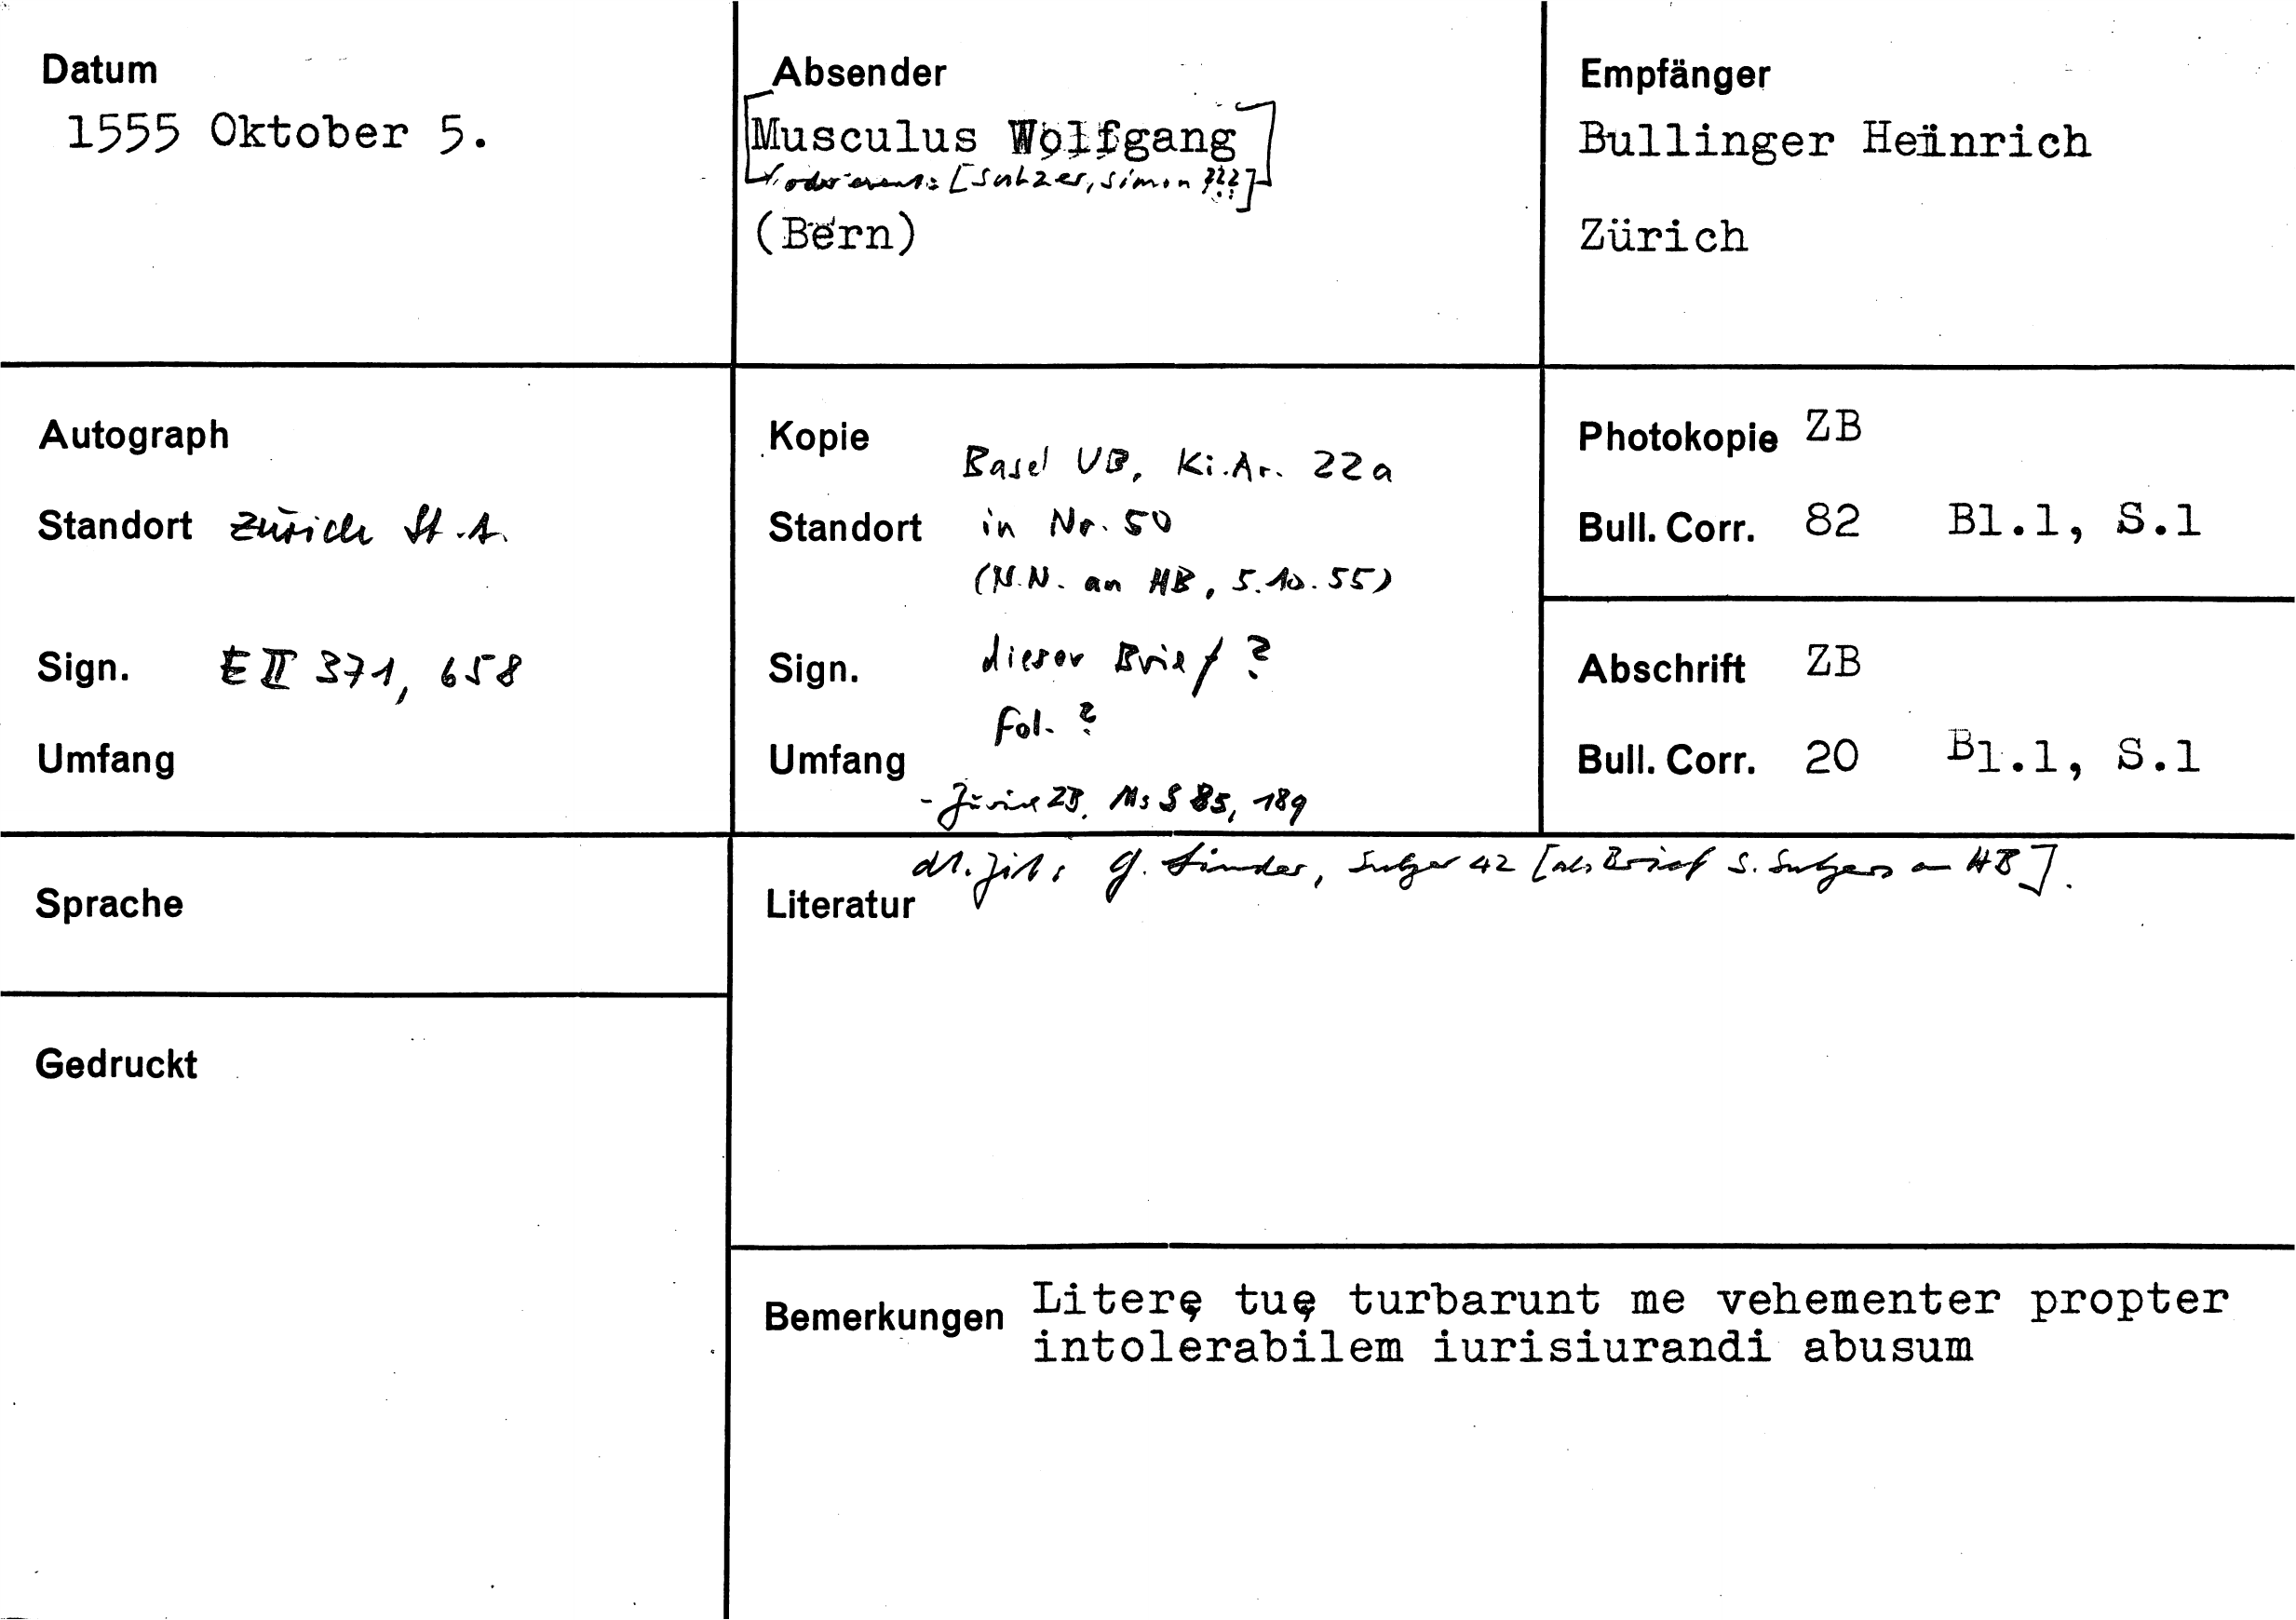 Datum
1555 Oktober 5.
Absender
[Musculus Wolfgang]
oder event: [Sulzer, Simon ???]
(Bern)
Empfänger
Bullinger Heinrich
Zürich
Autograph
Standort Zürich St.A.
Sign. E II 371, 658
Umfang
Kopie
Basel UB, Ki.Ar. 22a
Standort in Nr. 50
(N.N. an HB, 5.10.55)
Sign. dieser Brief ?
Fol. ?
Umfang
- Zürich ZB, Ms S 85, 189
Photokopie ZB
Bull. Corr. 82 Bl.1, S.1
Abschrift ZB
Bull. Corr. 20 Bl.1, S.1
Sprache
Gedruckt
Literatur
zit: G. Linder, Sulzer 42 [als Brief S. Sulzers an HB].
Bemerkungen Literę tuę turbarunt me vehementer propter
intolerabilem iurisiurandi abusum